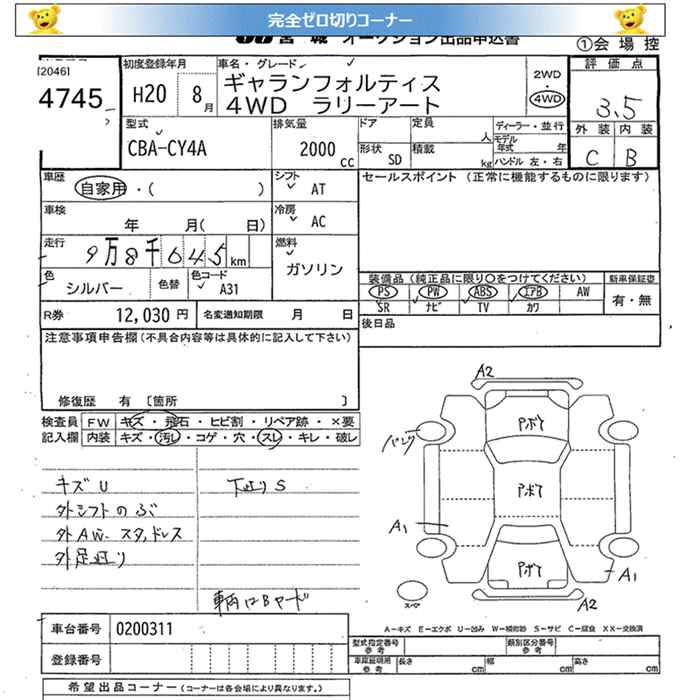 完全ゼロ切りコーナー
宮城 オークション出品申込書
①会場控
[2046]
4745
初度登録年月
H20 8月
車名・グレード
ギャランフォルティス
4WD ラリーアート
2WD
・
4WD
評価点
3.5
外装 内装
C B
型式
CBA-CY4A
排気量
2000 cc
ドア 定員 人
形状 SD 積載 kg
ディーラー・並行
モデル年式 年
ハンドル 左・右
車歴
自家用・( )
シフト
AT
セールスポイント (正常に機能するものに限ります)
車検
年 月( 日)
冷房
AC
走行
9万8千645km
燃料
ガソリン
色
シルバー
色替
色コード
A31
装備品(純正品に限り○をつけてください) 新車保証書
PS PW ABS エアB AW 有・無
SR ナビ TV カワ
R券 12,030円 名変通知期限 月 日
後日品
注意事項申告欄(不具合内容等は具体的に記入して下さい)
修復歴 有 〔箇所 〕
検査員 FW キズ・飛石・ヒビ割・リペア跡・×要
記入欄 内装 キズ・汚レ・コゲ・穴・スレ・キレ・破レ
キズU 下廻りS
外シフトのぶ
外AW、スタッドレス
外足廻り
車両はBヤード
A2
アボ1
パンク
アボ1
A1
アボ1
A1
A2
スペア
A-キズ E-エクボ U-凹み W-補修跡 S-サビ C-腐食 XX-交換済
車台番号 0200311
登録番号
型式指定番号 参考 類別区分番号 参考
車庫証明用 参考 長さ cm 幅 cm 高さ cm
希望出品コーナー(コーナーは各会場により異なります。)